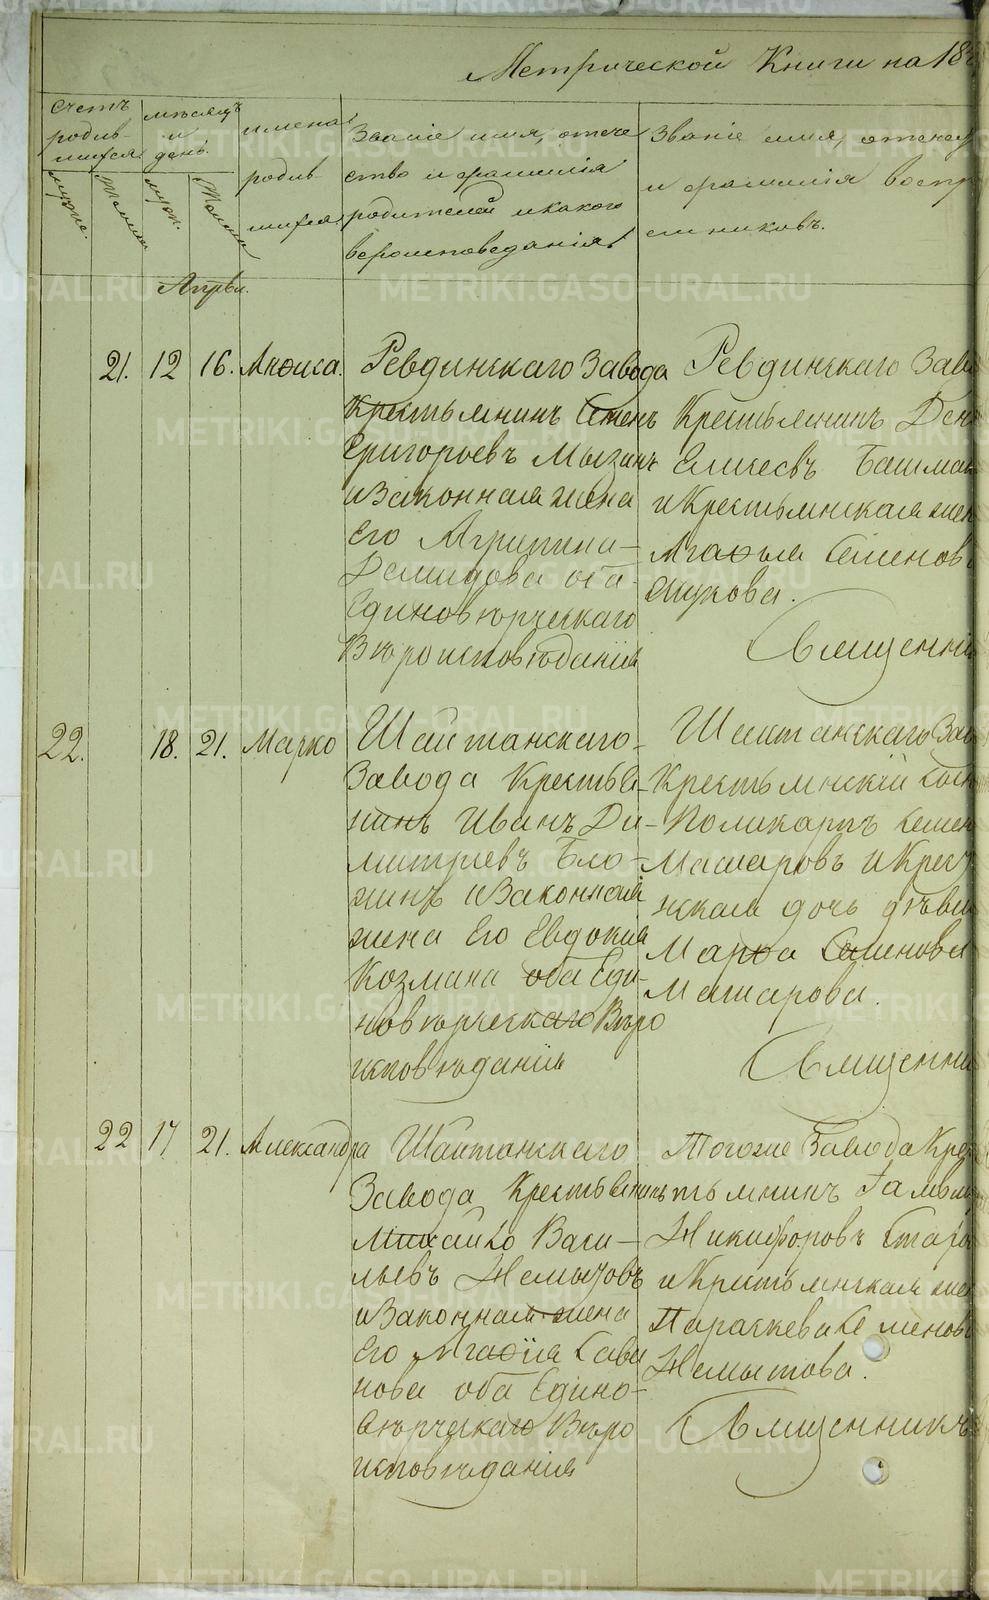 Метрической Книги на 18
Счетъ родив-шихся
мѣсяцъ и день
имена родив шихся
Званіе имя, отече ство и фамилія родителей и какого вероисповеданія
Званіе имя, отечес и фамилія воспр емниковъ.
муже.
женск
рож.
Апрѣл.
21. 12 16. Анѳиса.
Ревдинскаго Завода
Крестьянинъ Семенъ
Григорьевъ Мызинъ
и Законная жена
Его Агрипина
Демидова оба
Единовѣрческаго
Вѣроисповѣданія
Ревдинскаго Заво
Крестьянинъ
Елисеевъ Башма
и Крестьянская жен
Агаѳья Семенов
Священни
22. 18. 21. Марко
Шайтанскаго
Завода Крестья-
нинъ Иванъ Ди-
митриевъ Бло-
хинъ и Законная
жена Его Евдокия
Козмина оба Еди-
новѣрческаго Вѣро
исповѣданія
Шайтанскаго Зав
Крестьянский сын
Поликарпъ Семен
Машаровъ и Крест
нская дочь дѣви
Марѳа Семенова
Машарова.
Священни
22 17 21. Александра
Шайтанскаго
Завода Крестьянинъ
Михайло Васи-
льевъ Немытовъ
и Законная жена
Его Агаѳія Сави
нова оба Едино-
вѣрческаго Вѣро
исповѣдания
Тогоже Завода Крес
тьянинъ
Никифоровъ
и Крестьянская жен
Параскева Семенов
Немытова.
Священникъ
METRIKI.GASO-URAL.RU